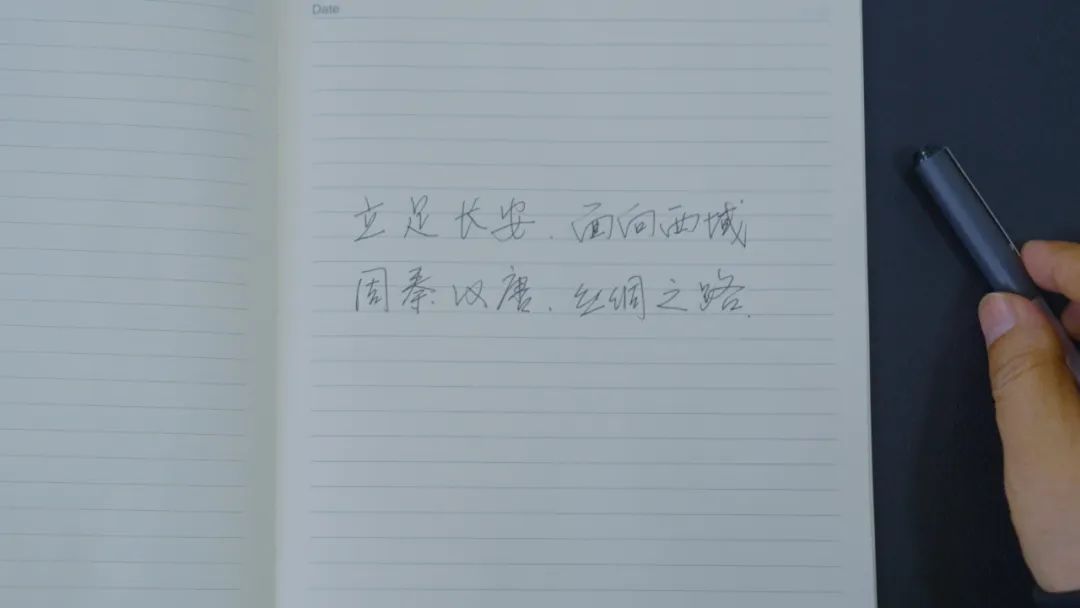 Date
立足长安.面向西域
周秦汉唐.丝绸之路.